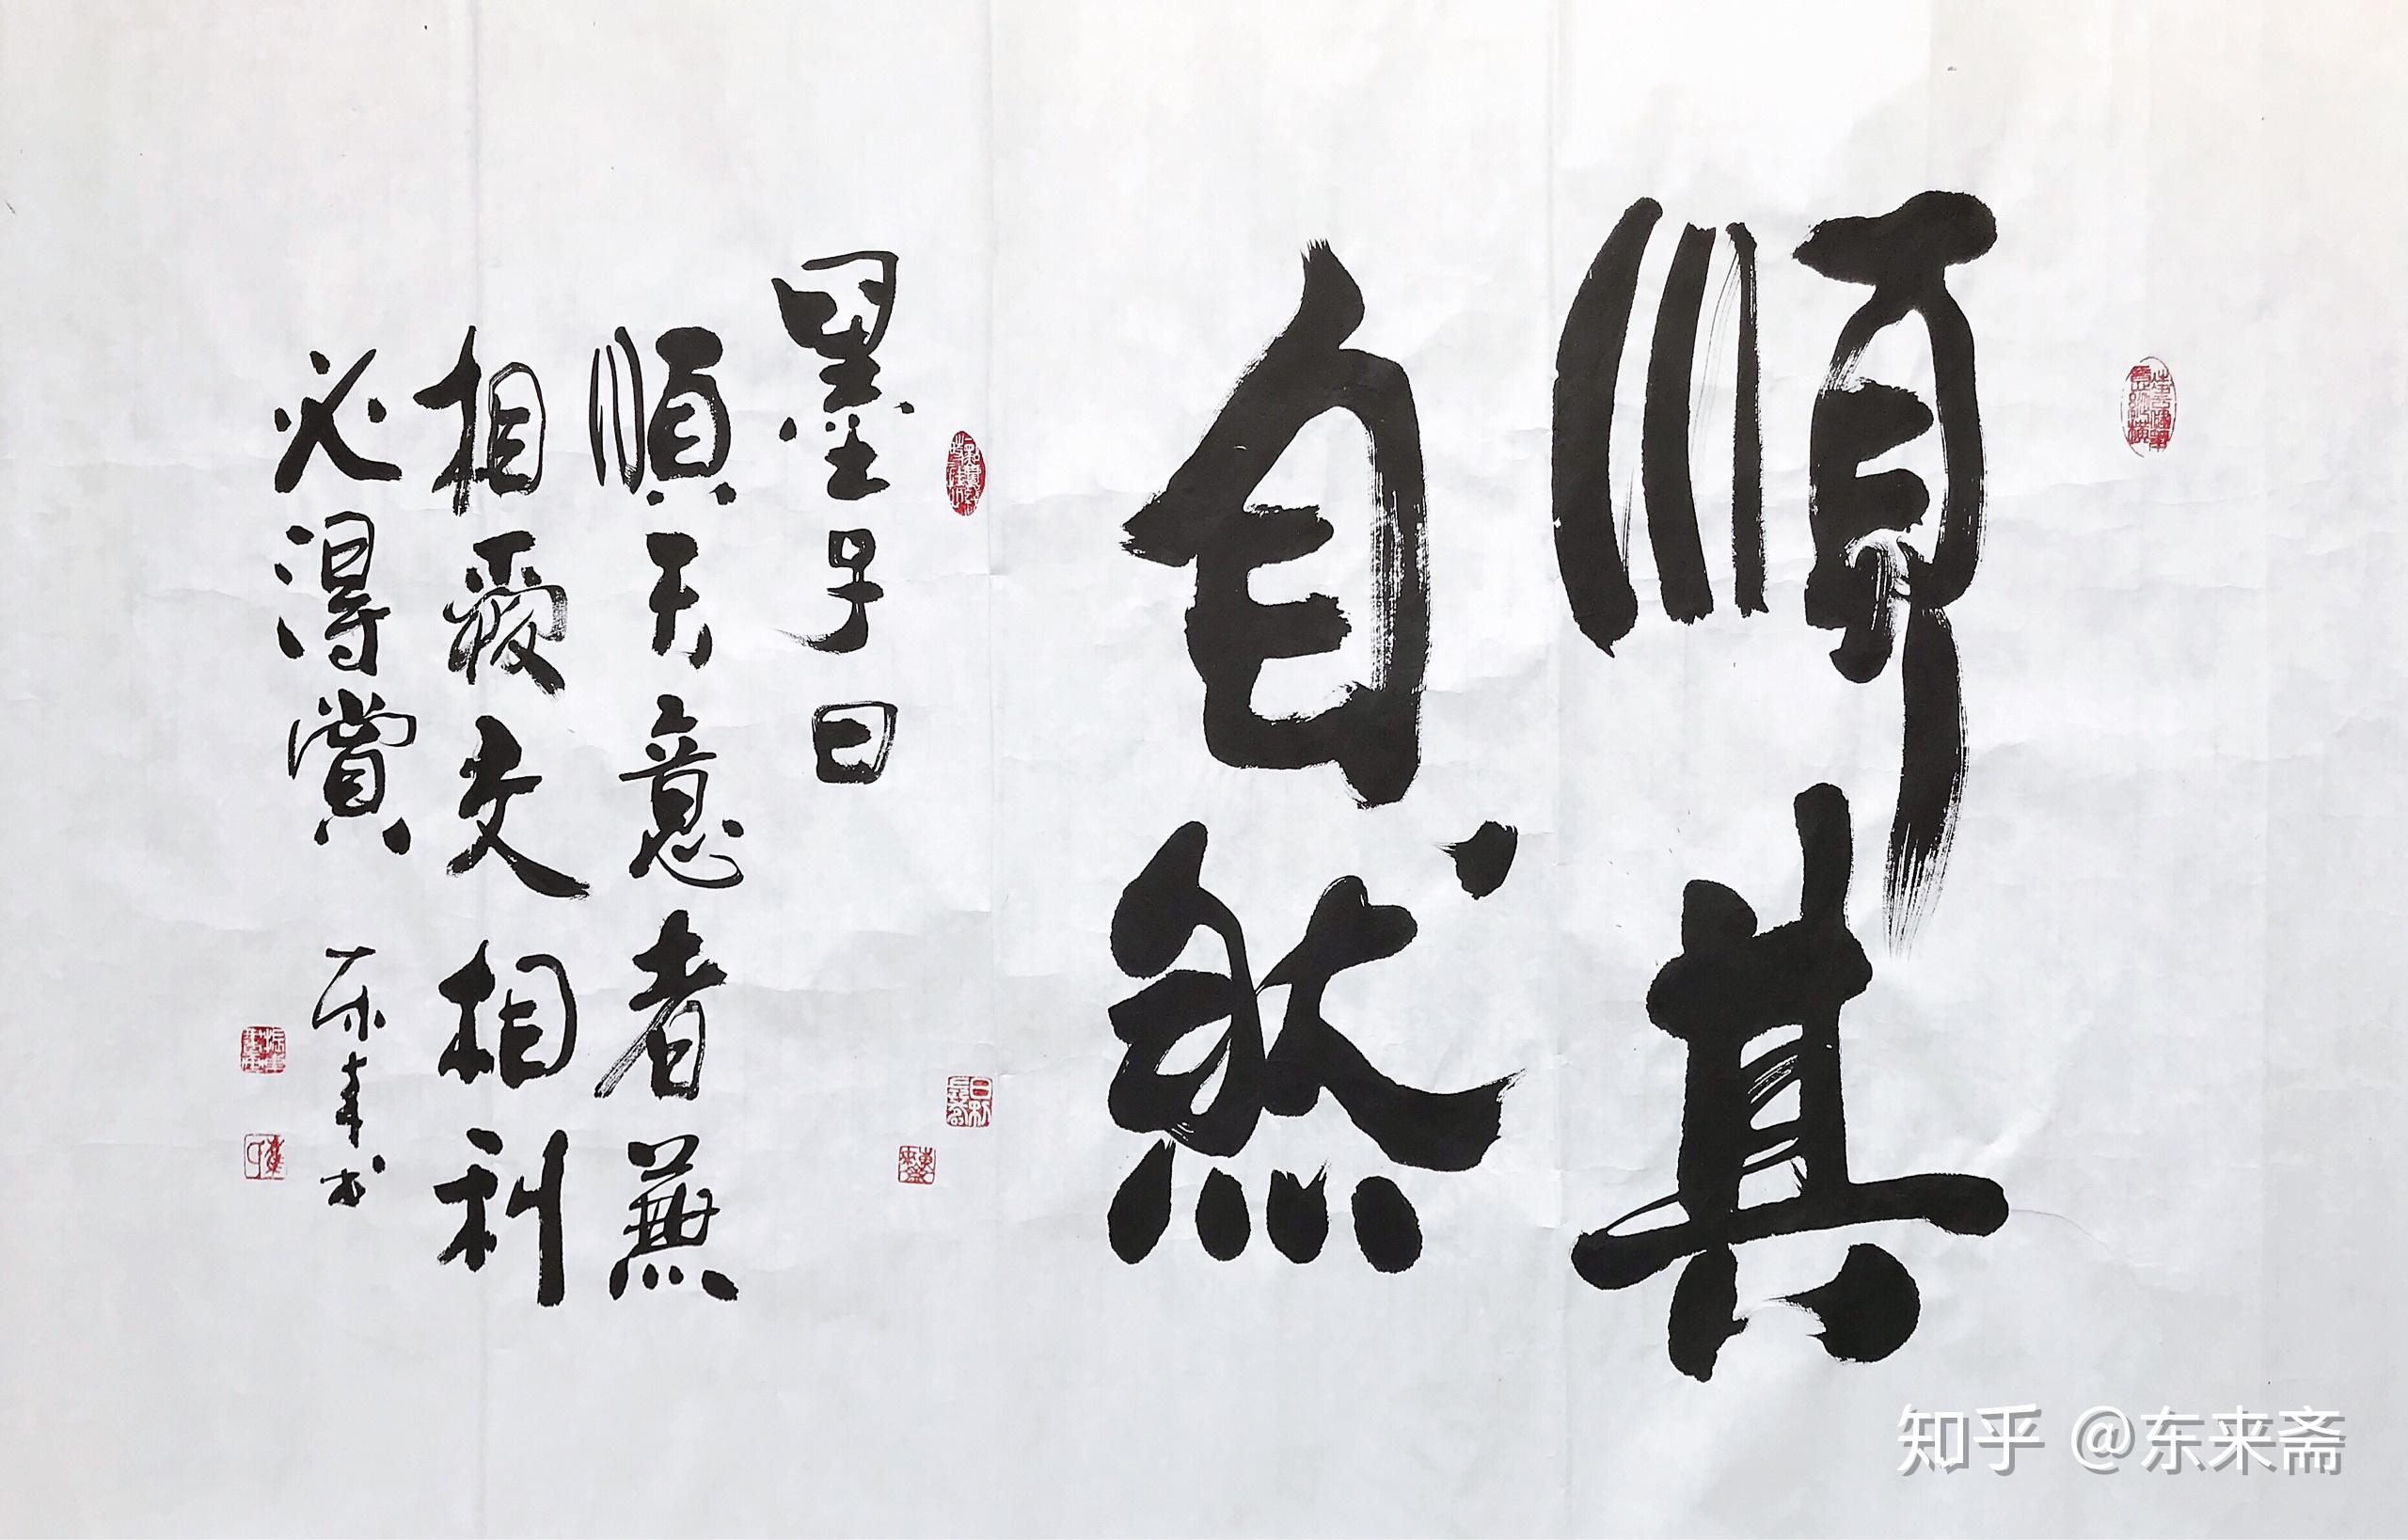 順其
自然
墨子曰
順天意者兼
相愛交相利
必得賞
书
知乎 @东来斋